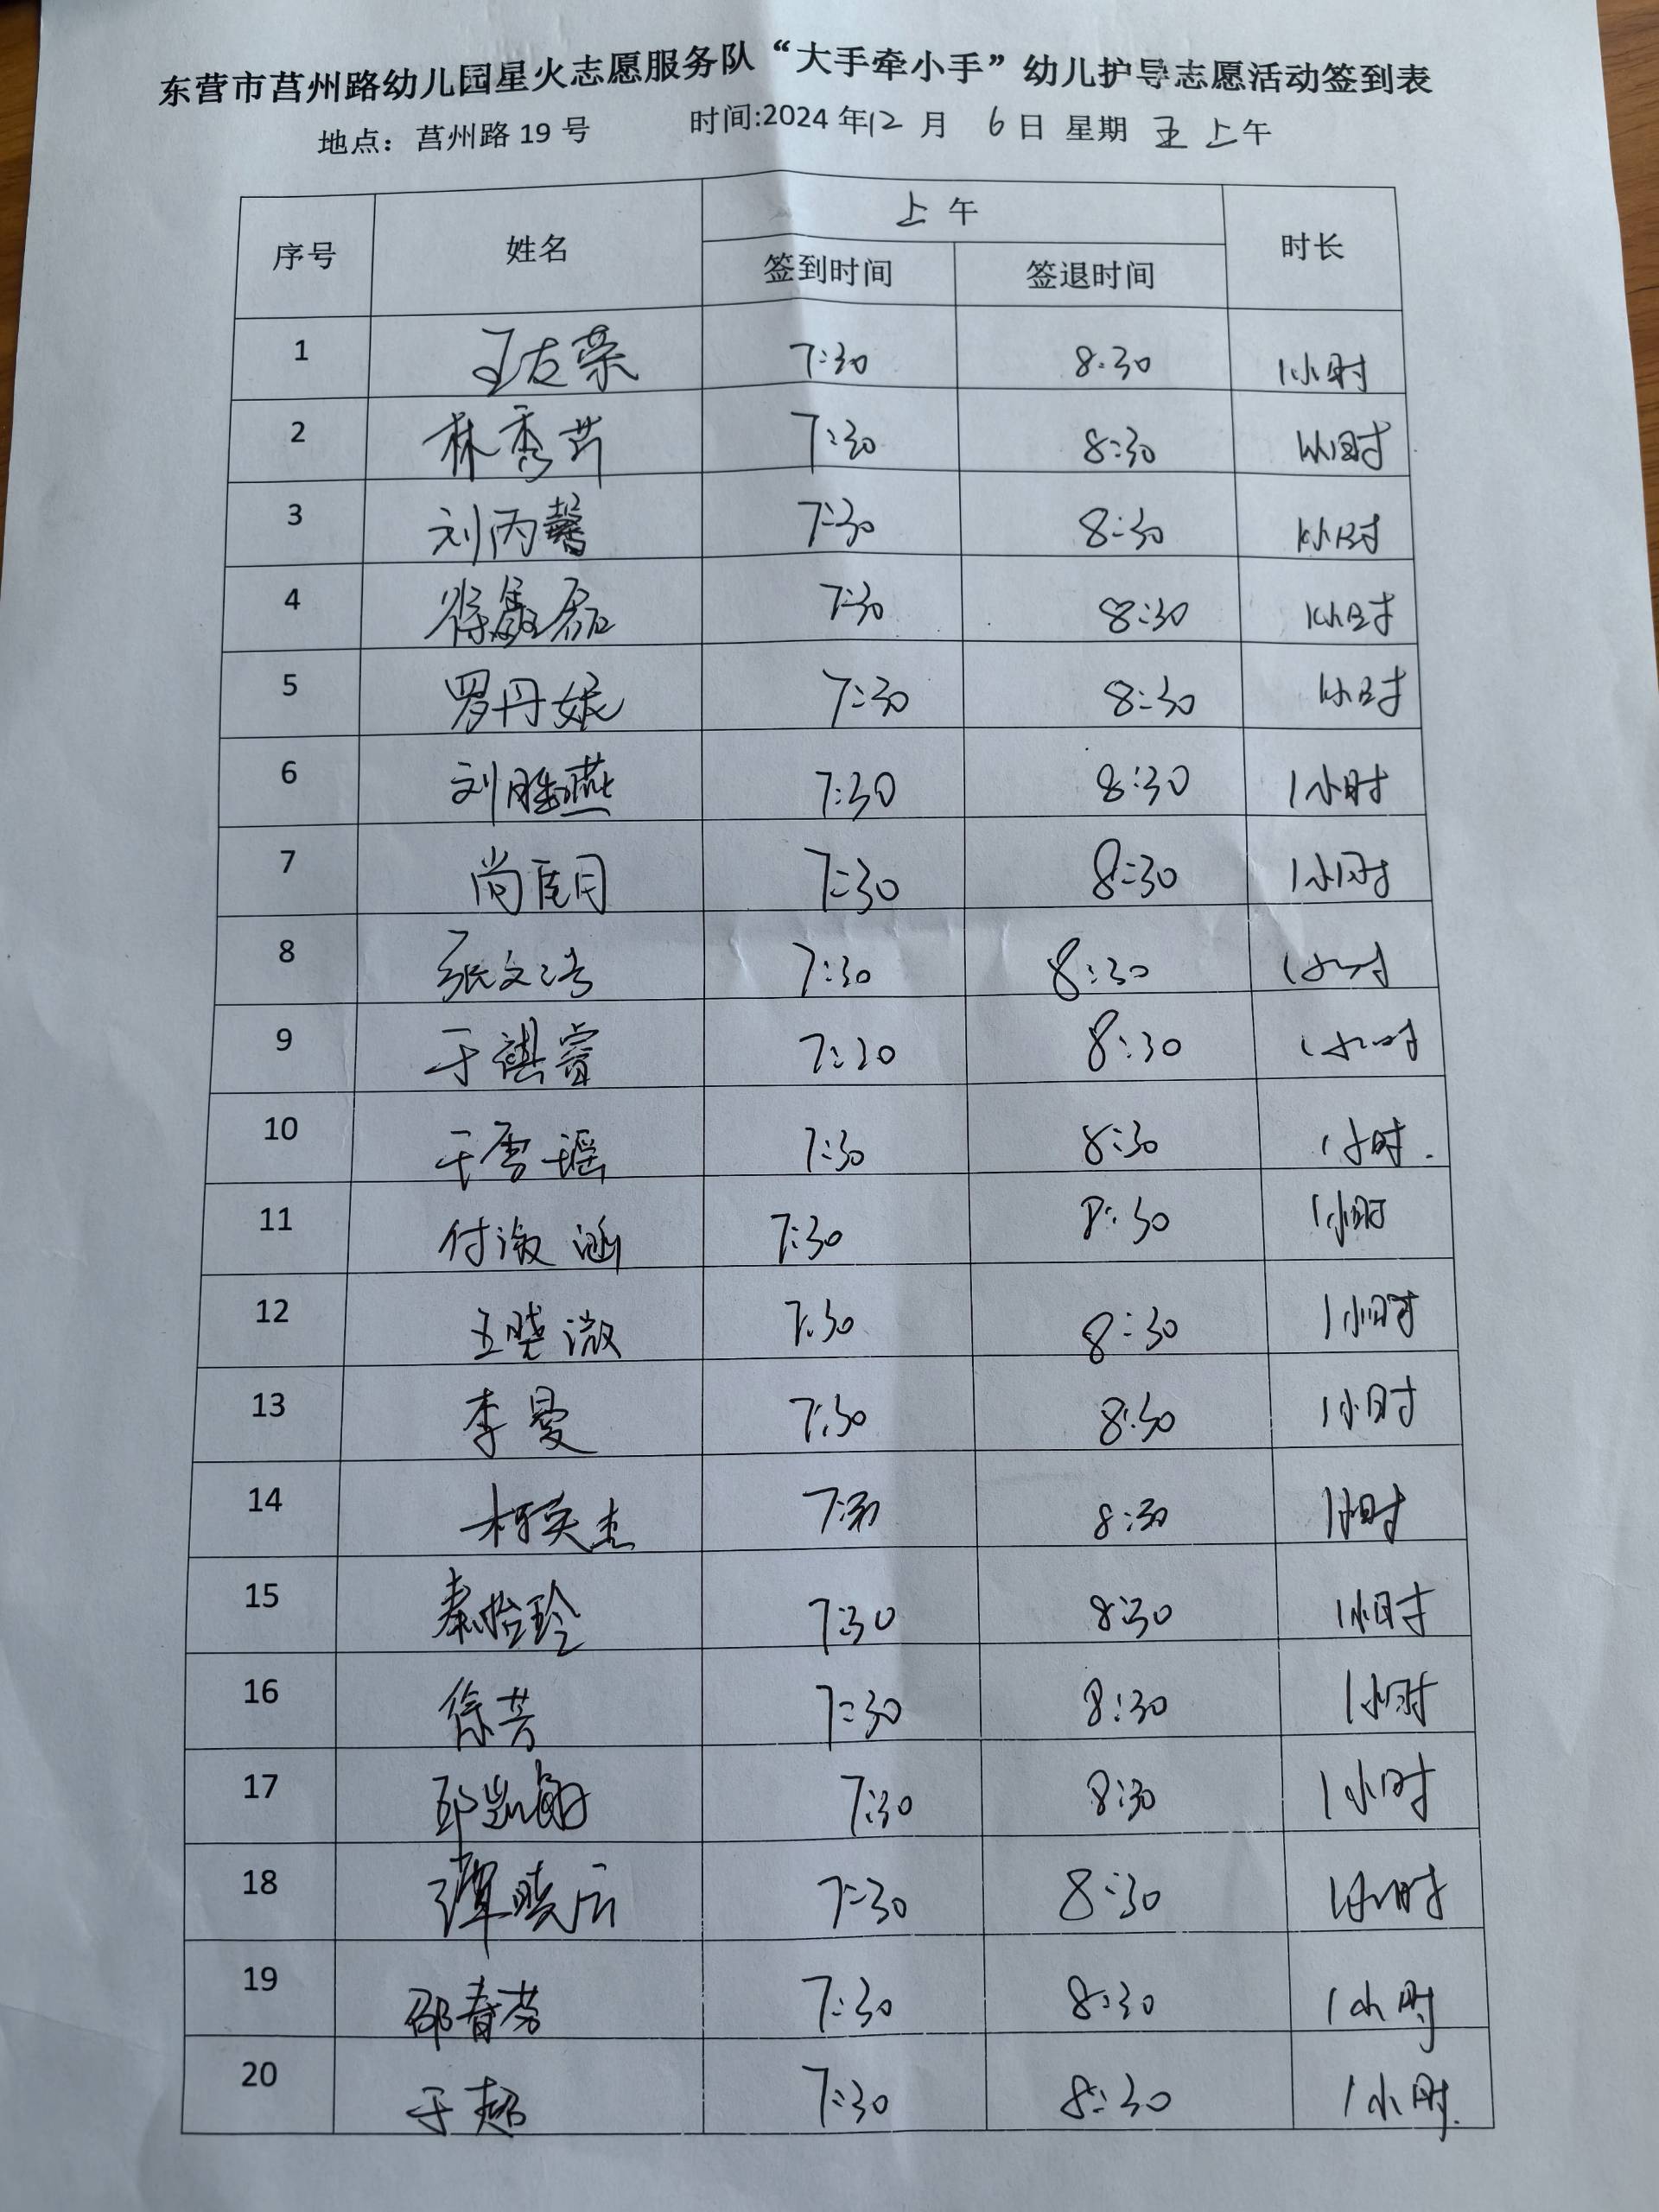 东营市莒州路幼儿园星火志愿服务队“大手牵小手”幼儿护导志愿活动签到表
地点：莒州路 19 号 时间:2024 年 12 月 6 日 星期 五 上午
序号 姓名 上午 时长
签到时间 签退时间
1 王友荣 7:30 8:30 1小时
2 林秀芹 7:30 8:30 1小时
3 刘丙馨 7:30 8:30 1小时
4 7:30 8:30 1小时
5 罗丹妮 7:30 8:30 1小时
6 刘胜燕 7:30 8:30 1小时
7 7:30 8:30 1小时
8 张文浩 7:30 8:30 1小时
9 于祺睿 7:30 8:30 1小时
10 于雪瑶 7:30 8:30 1小时.
11 7:30 8:30 1小时
12 王晓薇 7:30 8:30 1小时
13 李曼 7:30 8:30 1小时
14 柯英杰 7:30 8:30 1小时
15 秦怡玲 7:30 8:30 1小时
16 徐芳 7:30 8:30 1小时
17 7:30 8:30 1小时
18 7:30 8:30 1小时
19 邵春芬 7:30 8:30 1小时
20 于超 7:30 8:30 1小时.